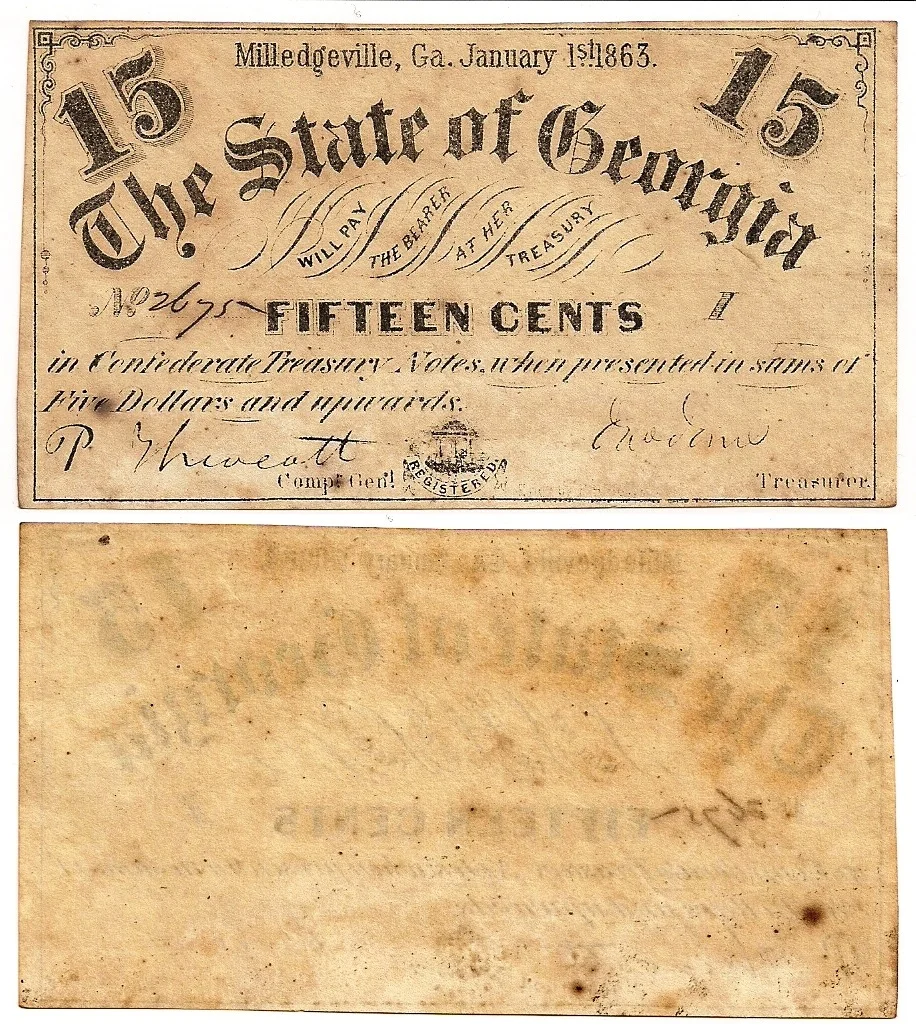 Milledgeville, Ga. January 1st 1863.
15 15
The State of Georgia
WILL PAY THE BEARER AT HER TREASURY
No 2675 FIFTEEN CENTS I
in Confederate Treasury Notes, when presented in sums of
Five Dollars and upwards.
P Thweatt
Comp. Genl. REGISTERED. Treasurer.